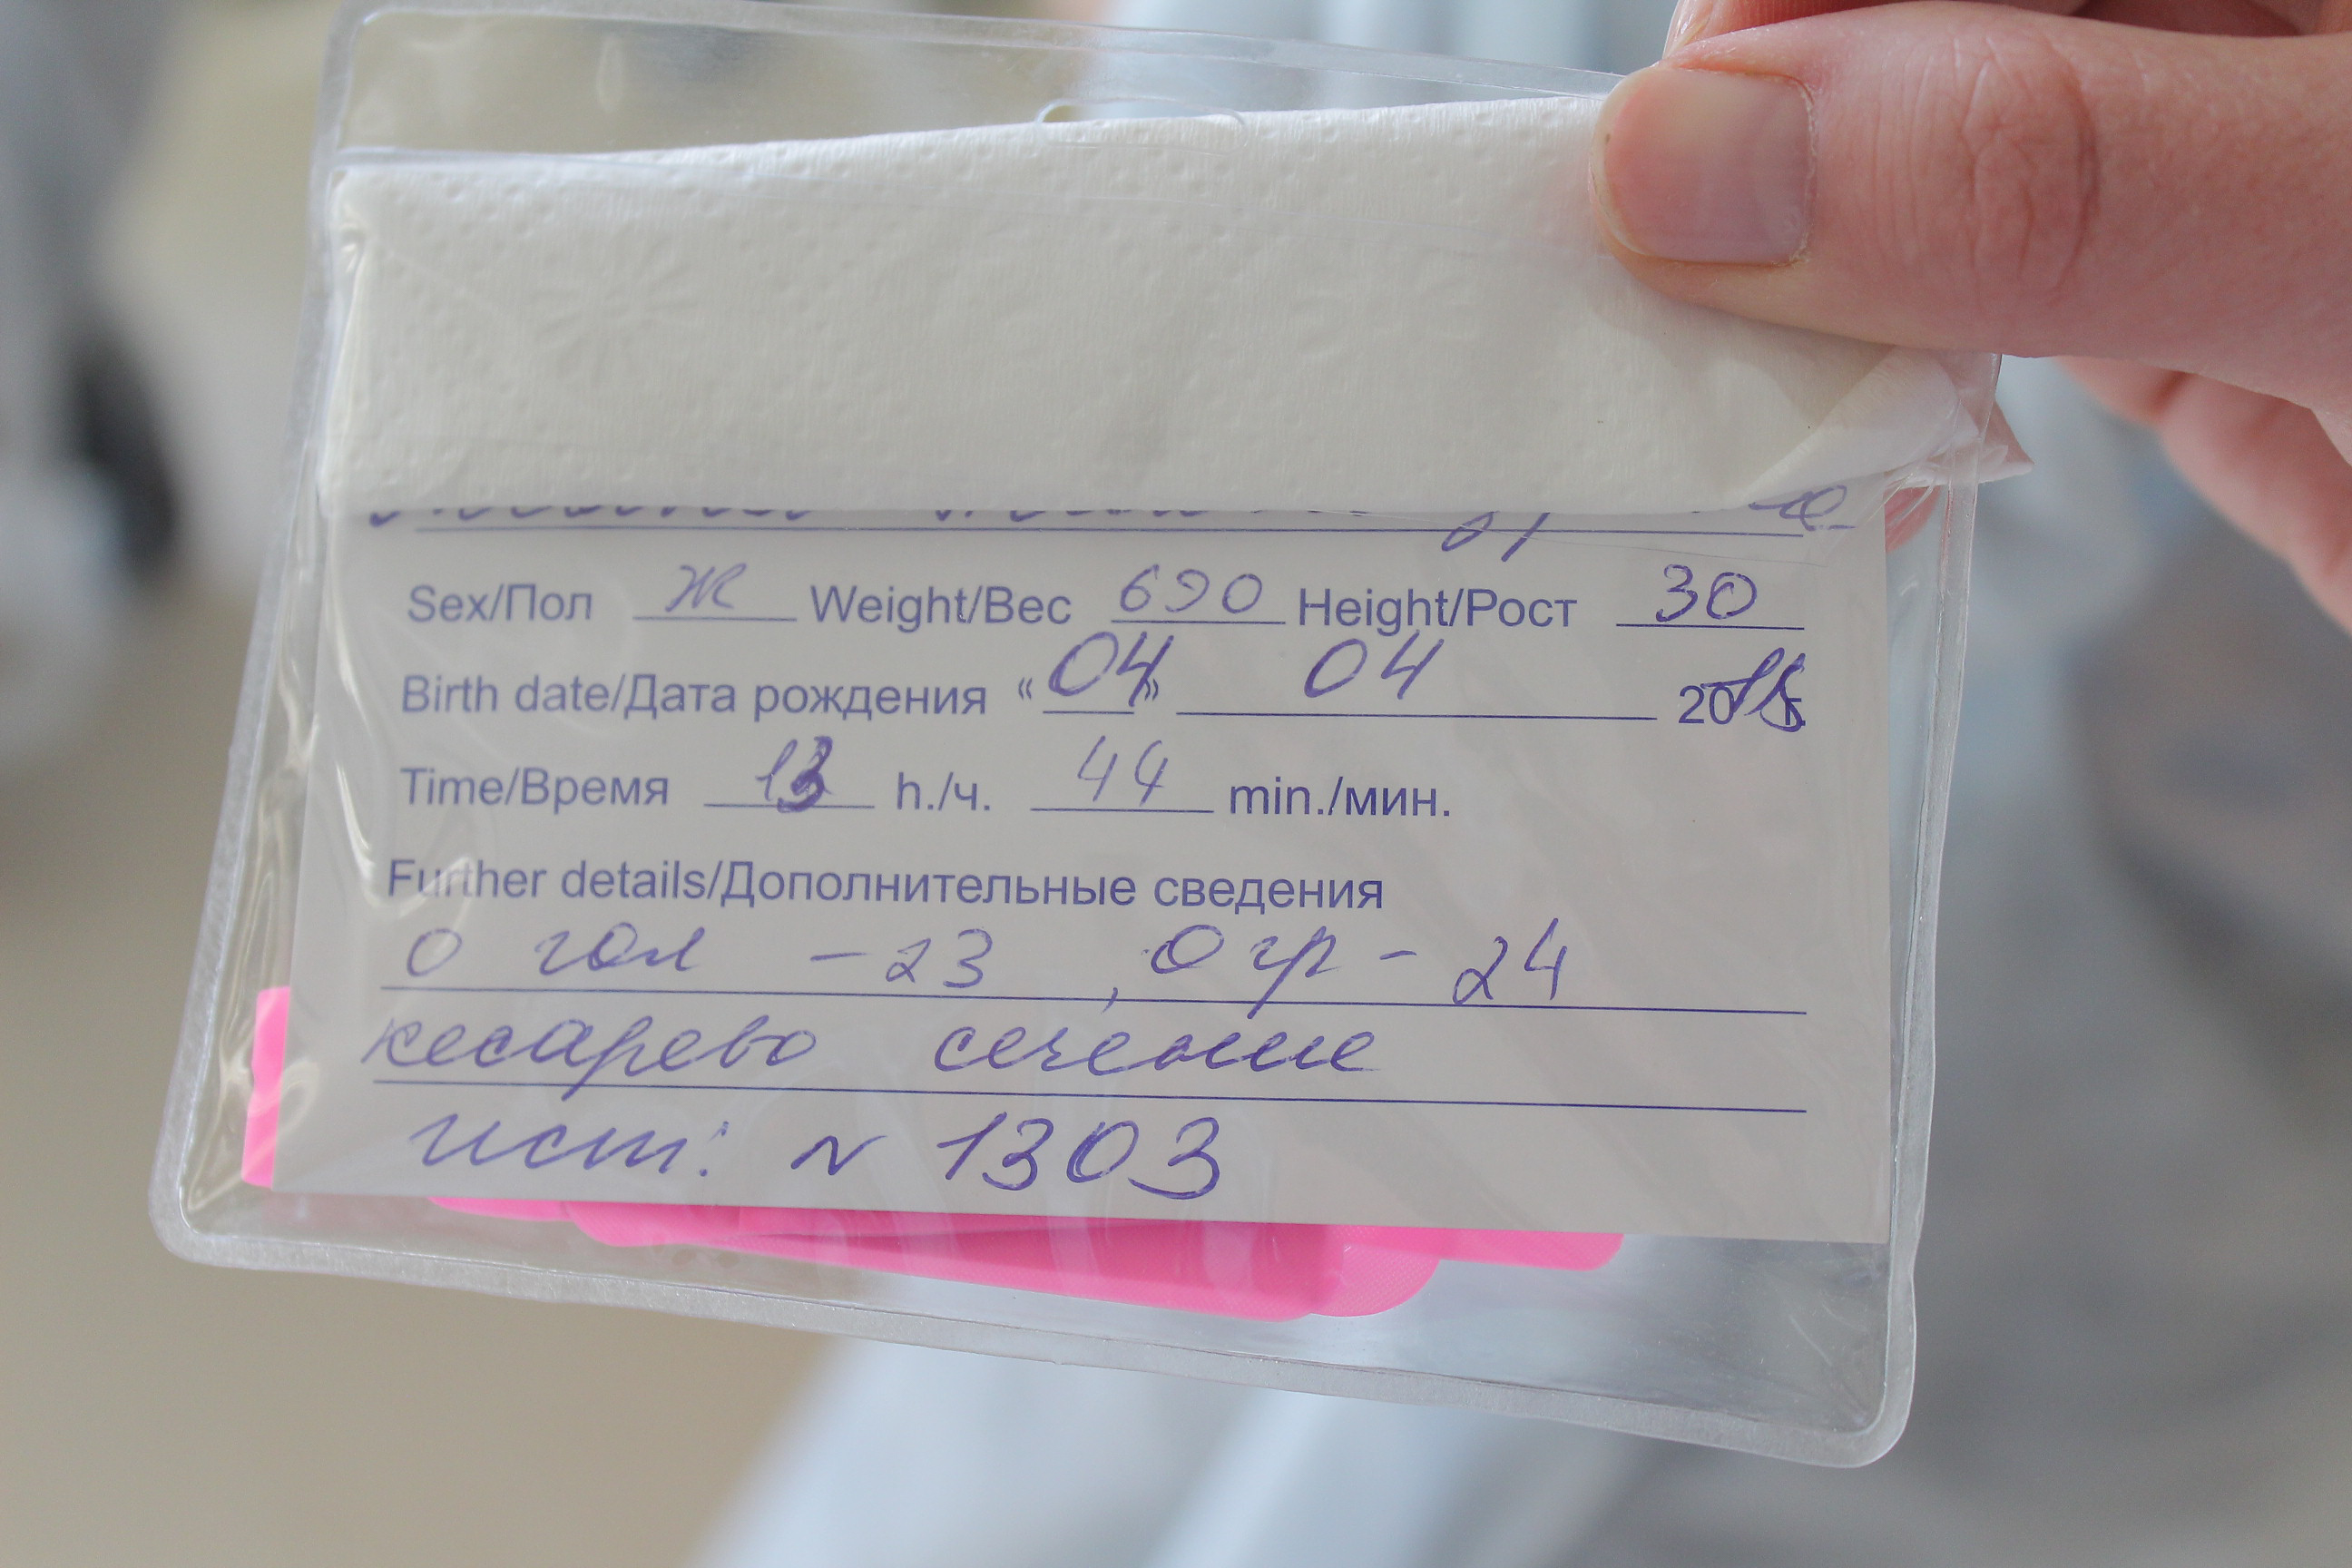 Sex/Пол Ж Weight/Вес 690 Height/Рост 30
Birth date/Дата рождения «04» 04 20
Time/Время 13 h./ч. 44 min./мин.
Further details/Дополнительные сведения
О гол - 23, О гр - 24
кесарево сечение
ист: N 1303